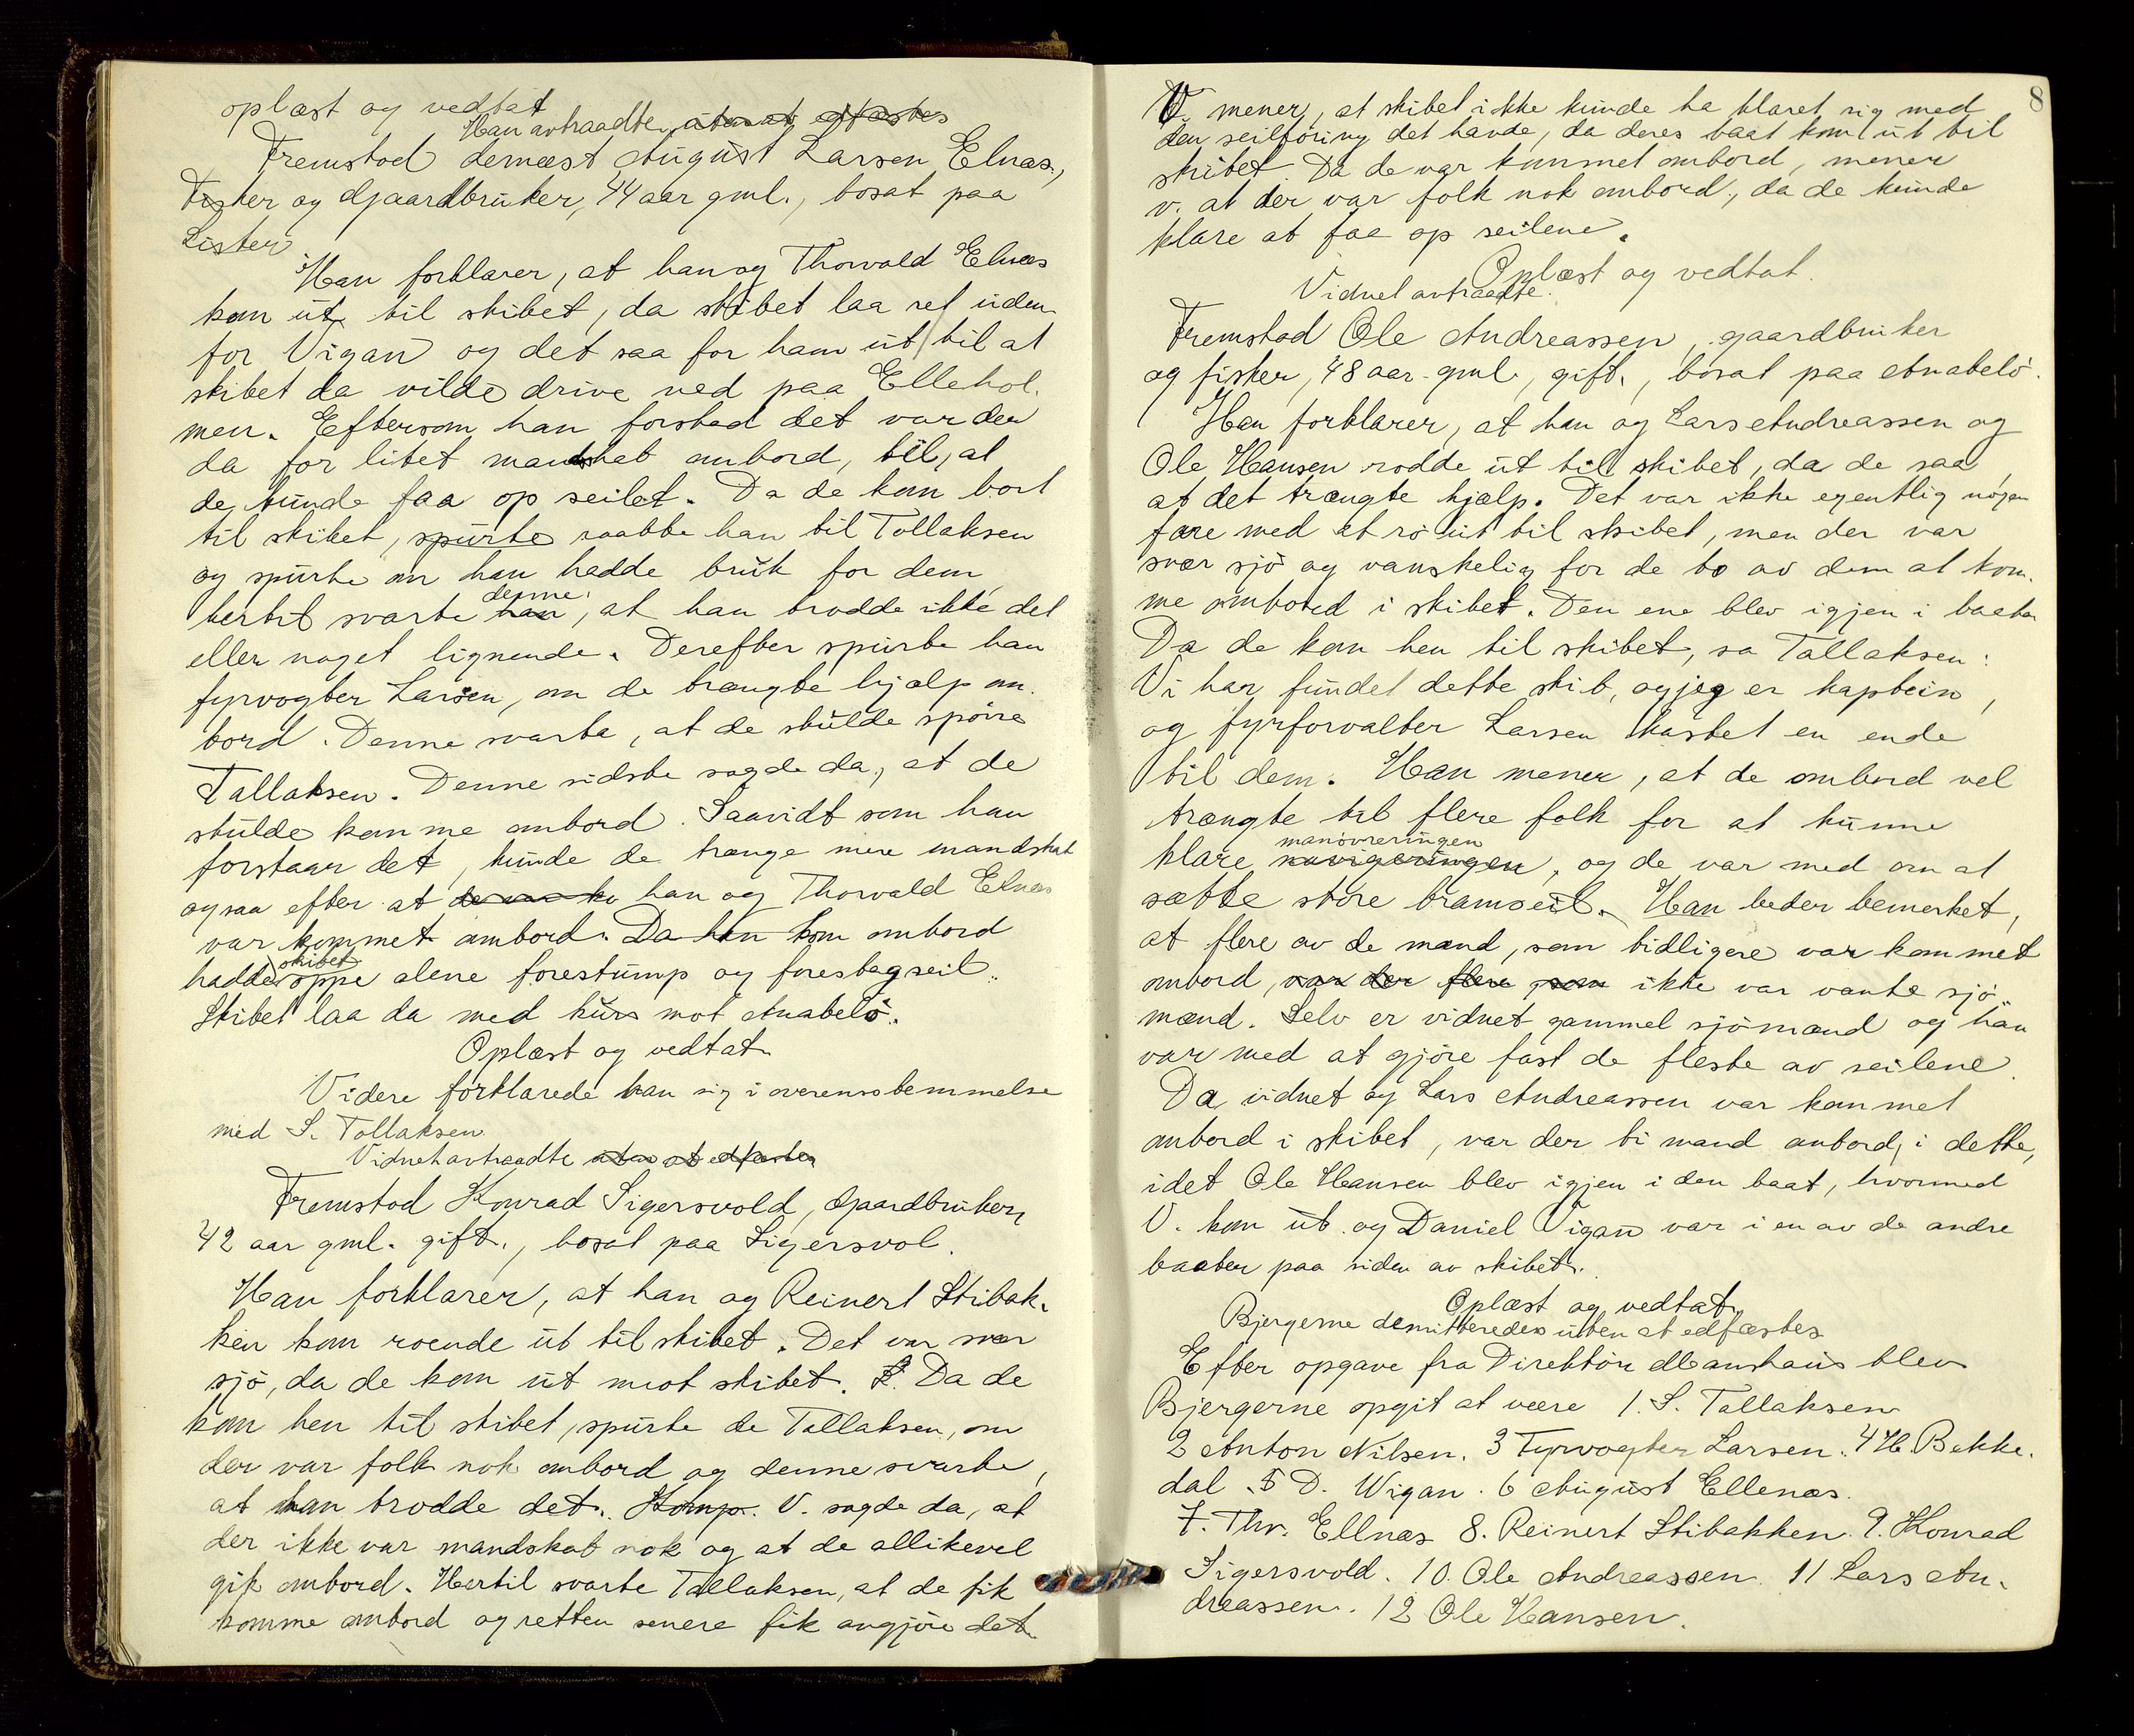 oplæst og vedtat
Han avtraadte uten at edfæstes
Fremstod dernæst August Larsen Elnæs,
Fisker og Gjaardbruker, 44 aar gml., bosat paa
Lister
Han forklarer, at han og Thorvald Elnæs
kom ut til skibet, da skibet laa ret uden
for Vigan og det saa for ham ut til at
skibet da vilde drive ned paa Ellehol.
men. Eftersom han forstod det var der
da for litet mandskab ombord, til, at
de kunde faa op seilet. Da de kom bort
til skibet, spurte raabte han til Tollaksen
og spurte om han hadde bruk for dem,
hertil svarte han denne, at han trodde ikke det
eller noget lignende. Derefter spurte han
fyrvogter Larsen, om de trængte hjælp om.
bord. Denne svarte, at de skulde spörre
Tallaksen. Denne sidste sagde da, at de
skulde komme ombord. Saavidt som han
forstaar det, kunde de trænge mere mandskab
ogsaa efter at han og Thorvald Elnæs
var kommet ombord. Da han kom ombord
hadde skibet oppe alene forestump og forestagseil.
Skibet laa da med kurs mot Anabelö.
Oplæst og vedtat.
Videre forklarede han sig i overensstemmelse
med S. Tollaksen.
Vidnet avtraadte uten at edfæstes
Fremstod Konrad Sigersvold, Gaardbruker,
42 aar gml. gift., bosat paa Sigersvol.
Han forklarer, at han og Reinert Stibak.
ken kom roende ut til skibet. Det var svær
sjö, da de kom ut mot skibet. Da de
kom hen til skibet, spurte de Tallaksen, om
der var folk nok ombord og denne svarte,
at han trodde det. Komp. V. sagde da, at
der ikke var mandskab nok og at de allikevel
gik ombord. Hertil svarte Tallaksen, at de fik
komme ombord og retten senere fik avgjöre det.
8
V. mener, at skibet ikke kunde ha klaret sig med
den seilföring det havde, da deres baat kom ut til
skibet. Da de var kommet ombord, mener
v. at der var folk nok ombord, da de kunde
klare at faa op seilene.
Oplæst og vedtat.
Vidnet avtraadte.
Fremstod Ole Andreassen, gaardbruker
og fisker, 48 aar gml, gift., bosat paa Anabelö.
Han forklarer, at han og Lars Andreassen og
Ole Hansen rodde ut til skibet, da de saa,
at det trængte hjælp. Det var ikke egentlig nogen
fare med at ro ut til skibet, men der var
svær sjö og vanskelig for de to av dem at kom.
me ombord i skibet. Den ene blev igjen i baaten
Da de kom hen til skibet, sa Tallaksen:
Vi har fundet dette skib, og jeg er kaptein,
og fyrforvalter Larsen kastet en ende
til dem. Han mener, at de ombord vel
trængte til flere folk for at kunne
klare navigeringen manövreringen, og de var med om at
sætte store bramseil. Han beder bemerket,
at flere av de mænd, som tidligere var kommet
ombord, var der flere som ikke var vante sjö
mænd. Selv er vidnet gammel sjömand og han
var med at gjöre fast de fleste av seilene.
Da vidnet og Lars Andreassen var kommet
ombord i skibet, var der ti mand ombord i dette,
idet Ole Hansen blev igjen i den baat, hvormed
V. kom ut og Daniel Vigan var i en av de andre
baater paa siden av skibet.
Oplæst og vedtat.
Bjergerne demitteredes uten at edfæstes
Efter opgave fra Direktör Manshaus blev
Bjergerne opgit at være 1. S. Tallaksen
2 Anton Nilsen. 3 Fyrvogter Larsen. 4 H. Bekke.
dal. 5 D. Wigan. 6 August Ellenæs.
7. Thv. Ellnæs 8. Reinert Stibakken. 9. Konrad
Sigersvold. 10. Ole Andreassen. 11 Lars An.
dreassen. 12 Ole Hansen.